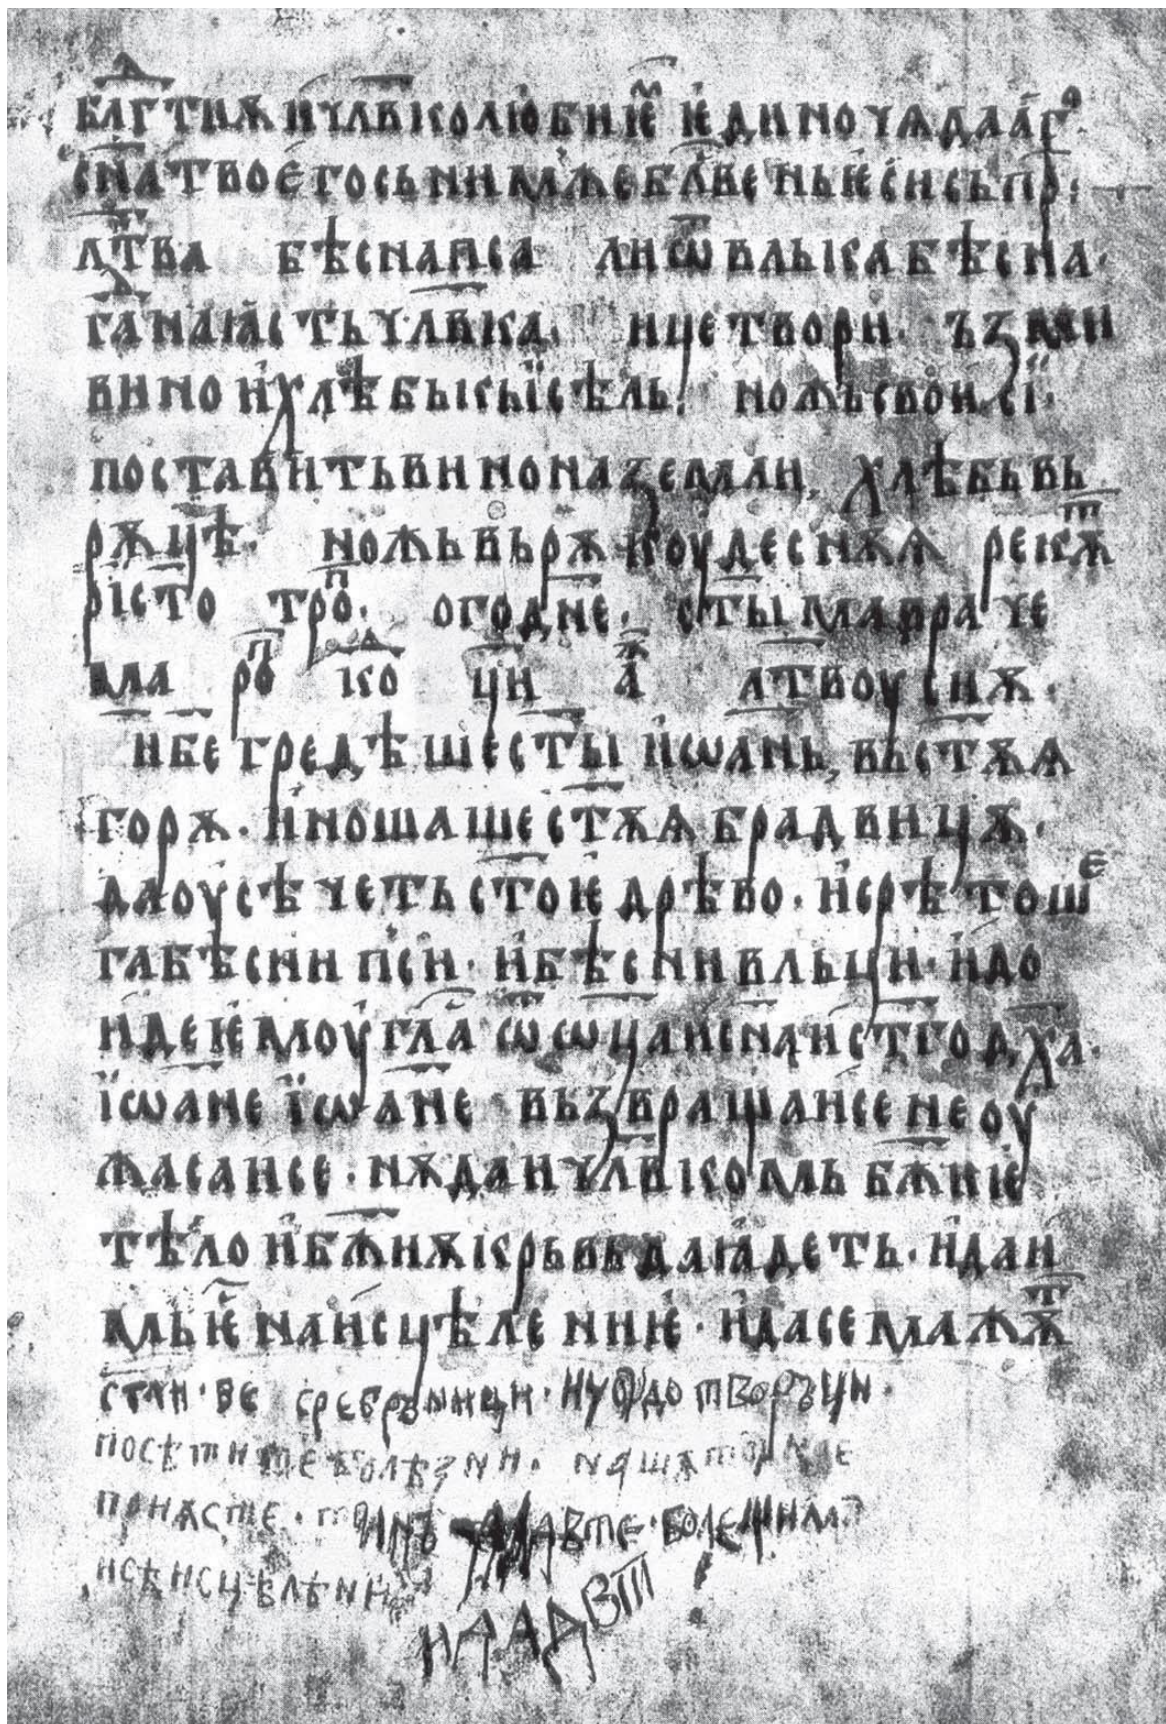 благтиѫ и члвколюбниѥмь ѥдиночѧдааго
сна твоего сь нимже блвень ѥси сь пр:
лтва бѣснаиса ли ѿ влька бѣсна·
га наꙗсть члвка· ище твори· ъзми
вино и хлѣбь кысѣль· ножь свои сіі·
поставить вино на земли, хлѣбь вь
рѫцѣ· ножь вь рѫкоу деснѫѧ рекѫт
рісто тропо· огодне· сты мавра че
ма ропо кодо ци аж лтвоу сиѫ·
и бе гредѣше сты иѡань, вь стѫѧ
горѫ· и ношаше стѫѧ брадвицѫ·
да оусѣчеть стоѥ дрѣво· и срѣтоше
га бѣсни пси· и бѣсни вльци· и до
иде ѥмоу гла ѿ ѡца и сна и стго дха·
їѡане їѡане вьзвращаисе не оу
жасаисе· нѫ даи члвкомь бжиѥ
тѣло и бжиѫ крьвь да ꙗдеть· и даи
мь ѥ на исцѣлениѥ· и да се мажѫт
стаи·ве сребрьници·и чюдотворъци·
посѣтите болѣзни· нашѫ
понасте· болещим
исѣ исцѣлѣни
и дадвт